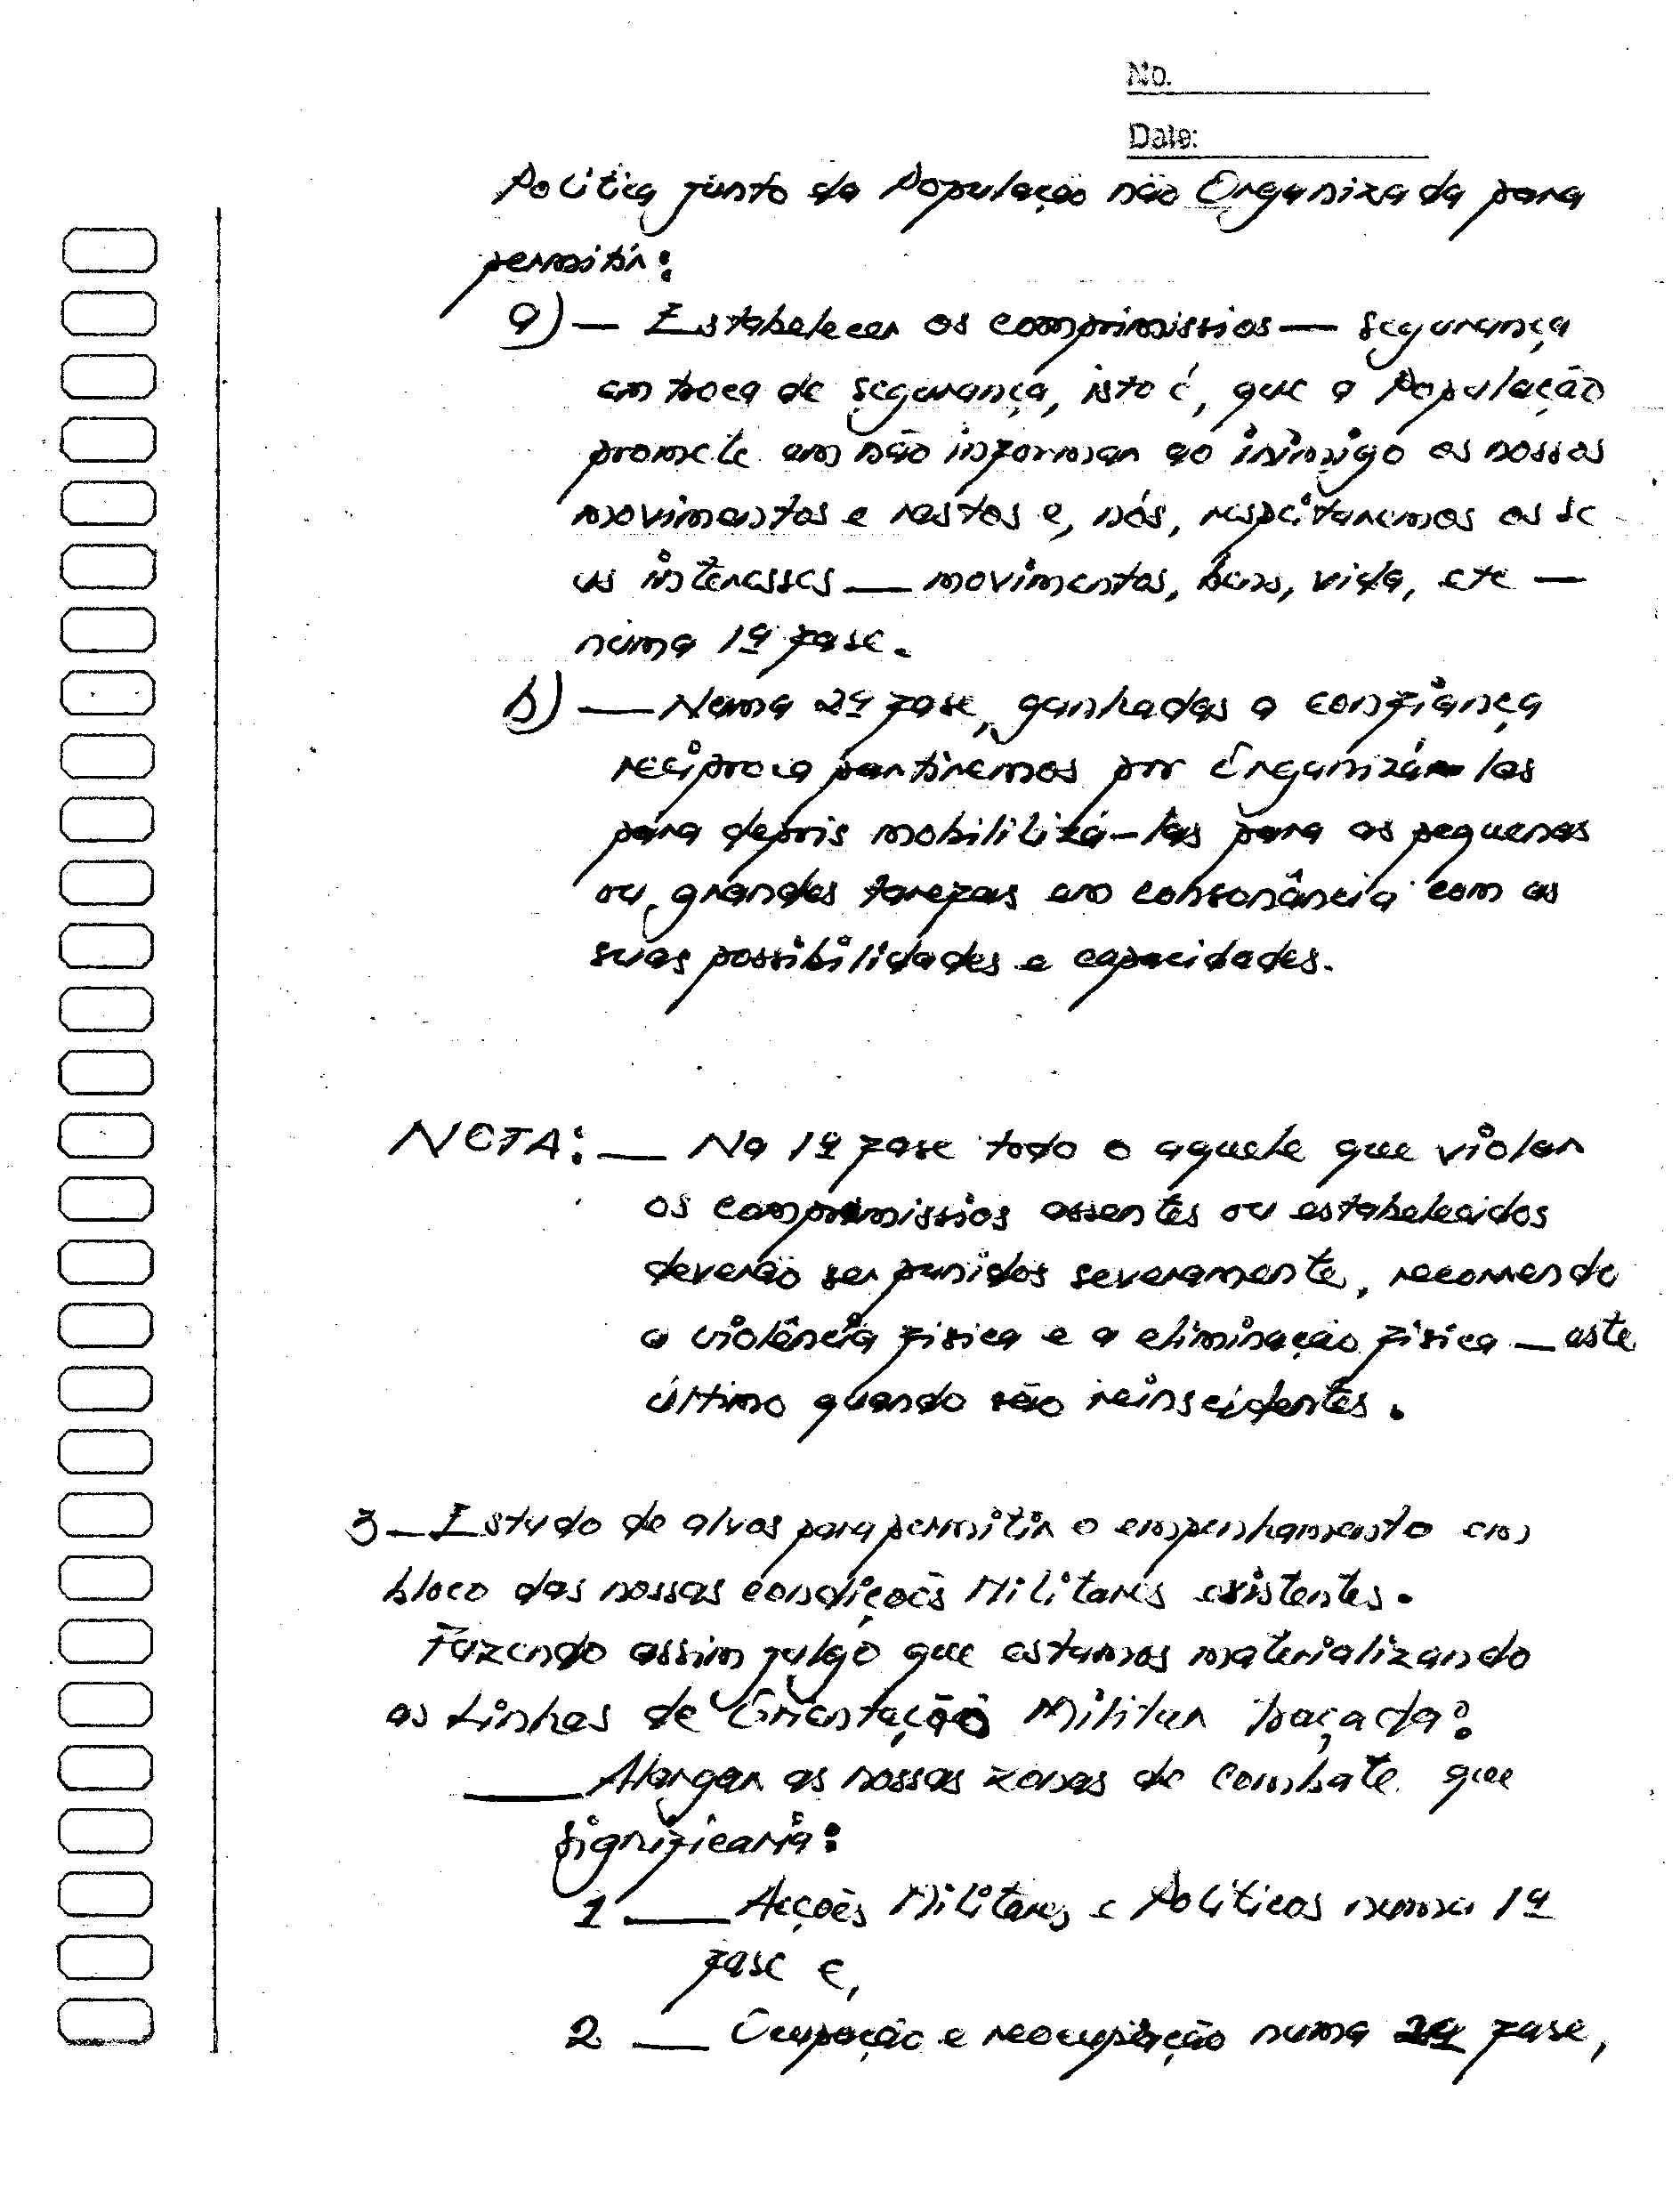 No.
Date:
Politica junto da População não Organizada para
permitir:
a) — Estabelecer os comprimissios — segurança
em troca de segurança, isto é, que a População
promete em não informar ao inimigo os nossos
movimentos e rastos e, nós, respeitaremos os se
us interesses — movimentos, bens, vida, etc —
numa 1ª fase.
b) — Numa 2ª fase, ganhadas a confiança
reciproca partiremos por Organizá-las
para depois mobililizá-las para as pequenas
ou grandes tarefas em consonância com as
suas possibilidades e capacidades.
NOTA: — Na 1ª fase todo o aquele que violar
os compromissios assentes ou estabelecidos
deverão ser punidos severamente, recomendo
a violência fisica e a eliminação fisica — este
último quando são reinscidentes.
3 — Estudo de alvos para permitir o empenhamento em
bloco das nossas condições Militares existentes.
Fazendo assim julgo que estamos materializando
as Linhas de Orientação Militar traçada:
— Alargar as nossas zonas de combate que
significaria:
1 — Acções Militares e Politicas numa 1ª
fase e,
2 — Ocupação e reocupação numa 2ª fase,